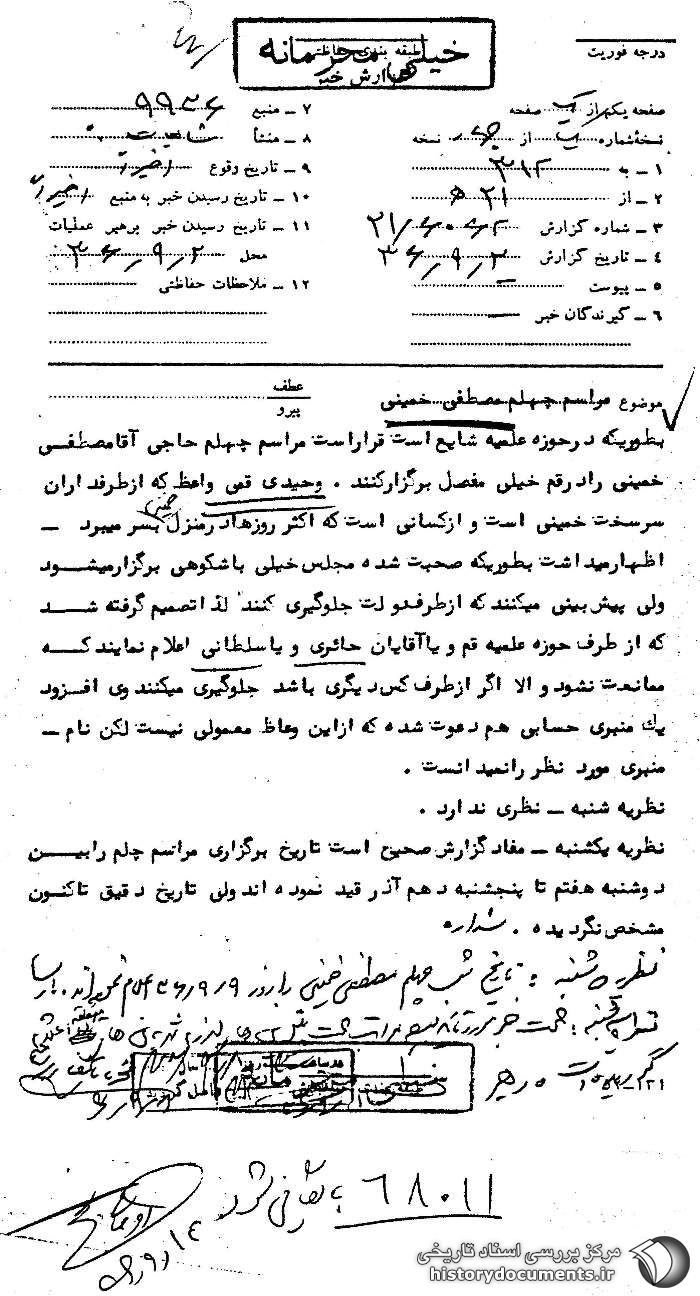 درجه فوریت
طبقه بندی حفاظتی
خیلی محرمانه
گزارش خبر
صفحه یکم از یک صفحه
نسخه شماره یک از چهار نسخه
۱ ـ به ۳۱۲
۲ ـ از ۲۱ ه
۳ ـ شماره گزارش
۴ ـ تاریخ گزارش ۳۶٫۹٫۲
۵ ـ پیوست
۶ ـ گیرندگان خبر
۷ ـ منبع ۹۹۳۶
۸ ـ منشأ شایعات
۹ ـ تاریخ وقوع اخیراً
۱۰ ـ تاریخ رسیدن خبر به منبع اخیراً
۱۱ ـ تاریخ رسیدن خبر برهبر عملیات
محل ۳۶٫۹٫۲
۱۲ ـ ملاحظات حفاظتی
موضوع مراسم چهلم مصطفی خمینی
عطف
پیرو
بطوریکه در حوزه علمیه شایع است قرار است مراسم چهلم حاجی آقا مصطفی
خمینی را در قم خیلی مفصل برگزار کنند . وحیدی قمی واعظ که از طرفداران
سرسخت خمینی است و از کسانی است که اکثر روزها در منزل خمینی بسر میبرد ـ
اظهار میداشت بطوریکه صحبت شده مجلس خیلی باشکوهی برگزار میشود
ولی پیش بینی میکنند که از طرف دولت جلوگیری کنند لذا تصمیم گرفته شد
که از طرف حوزه علمیه قم و یا آقایان حائری و یا سلطانی اعلام نمایند که
ممانعت نشود و الا اگر از طرف کس دیگری باشد جلوگیری میکنند وی افزود
یك منبری حسابی هم دعوت شده که از این وعاظ معمولی نیست لکن نام ـ
منبری مورد نظر را نمیدانست .
نظریه شنبه ـ نظری ندارد .
نظریه یکشنبه ـ مفاد گزارش صحیح است تاریخ برگزاری مراسم چلم را بین
دوشنبه هفتم تا پنجشنبه دهم آذر قید نموده اند ولی تاریخ دقیق تاکنون
مشخص نگردیده .
نظریه شنبه : تاریخ شب چهلم مصطفی خمینی را روز ۳۶٫۹٫۹ اعلام نموده‌اند .
۶۸۰۱۱ بایگانی شود
مرکز بررسی اسناد تاریخی
historydocuments.ir